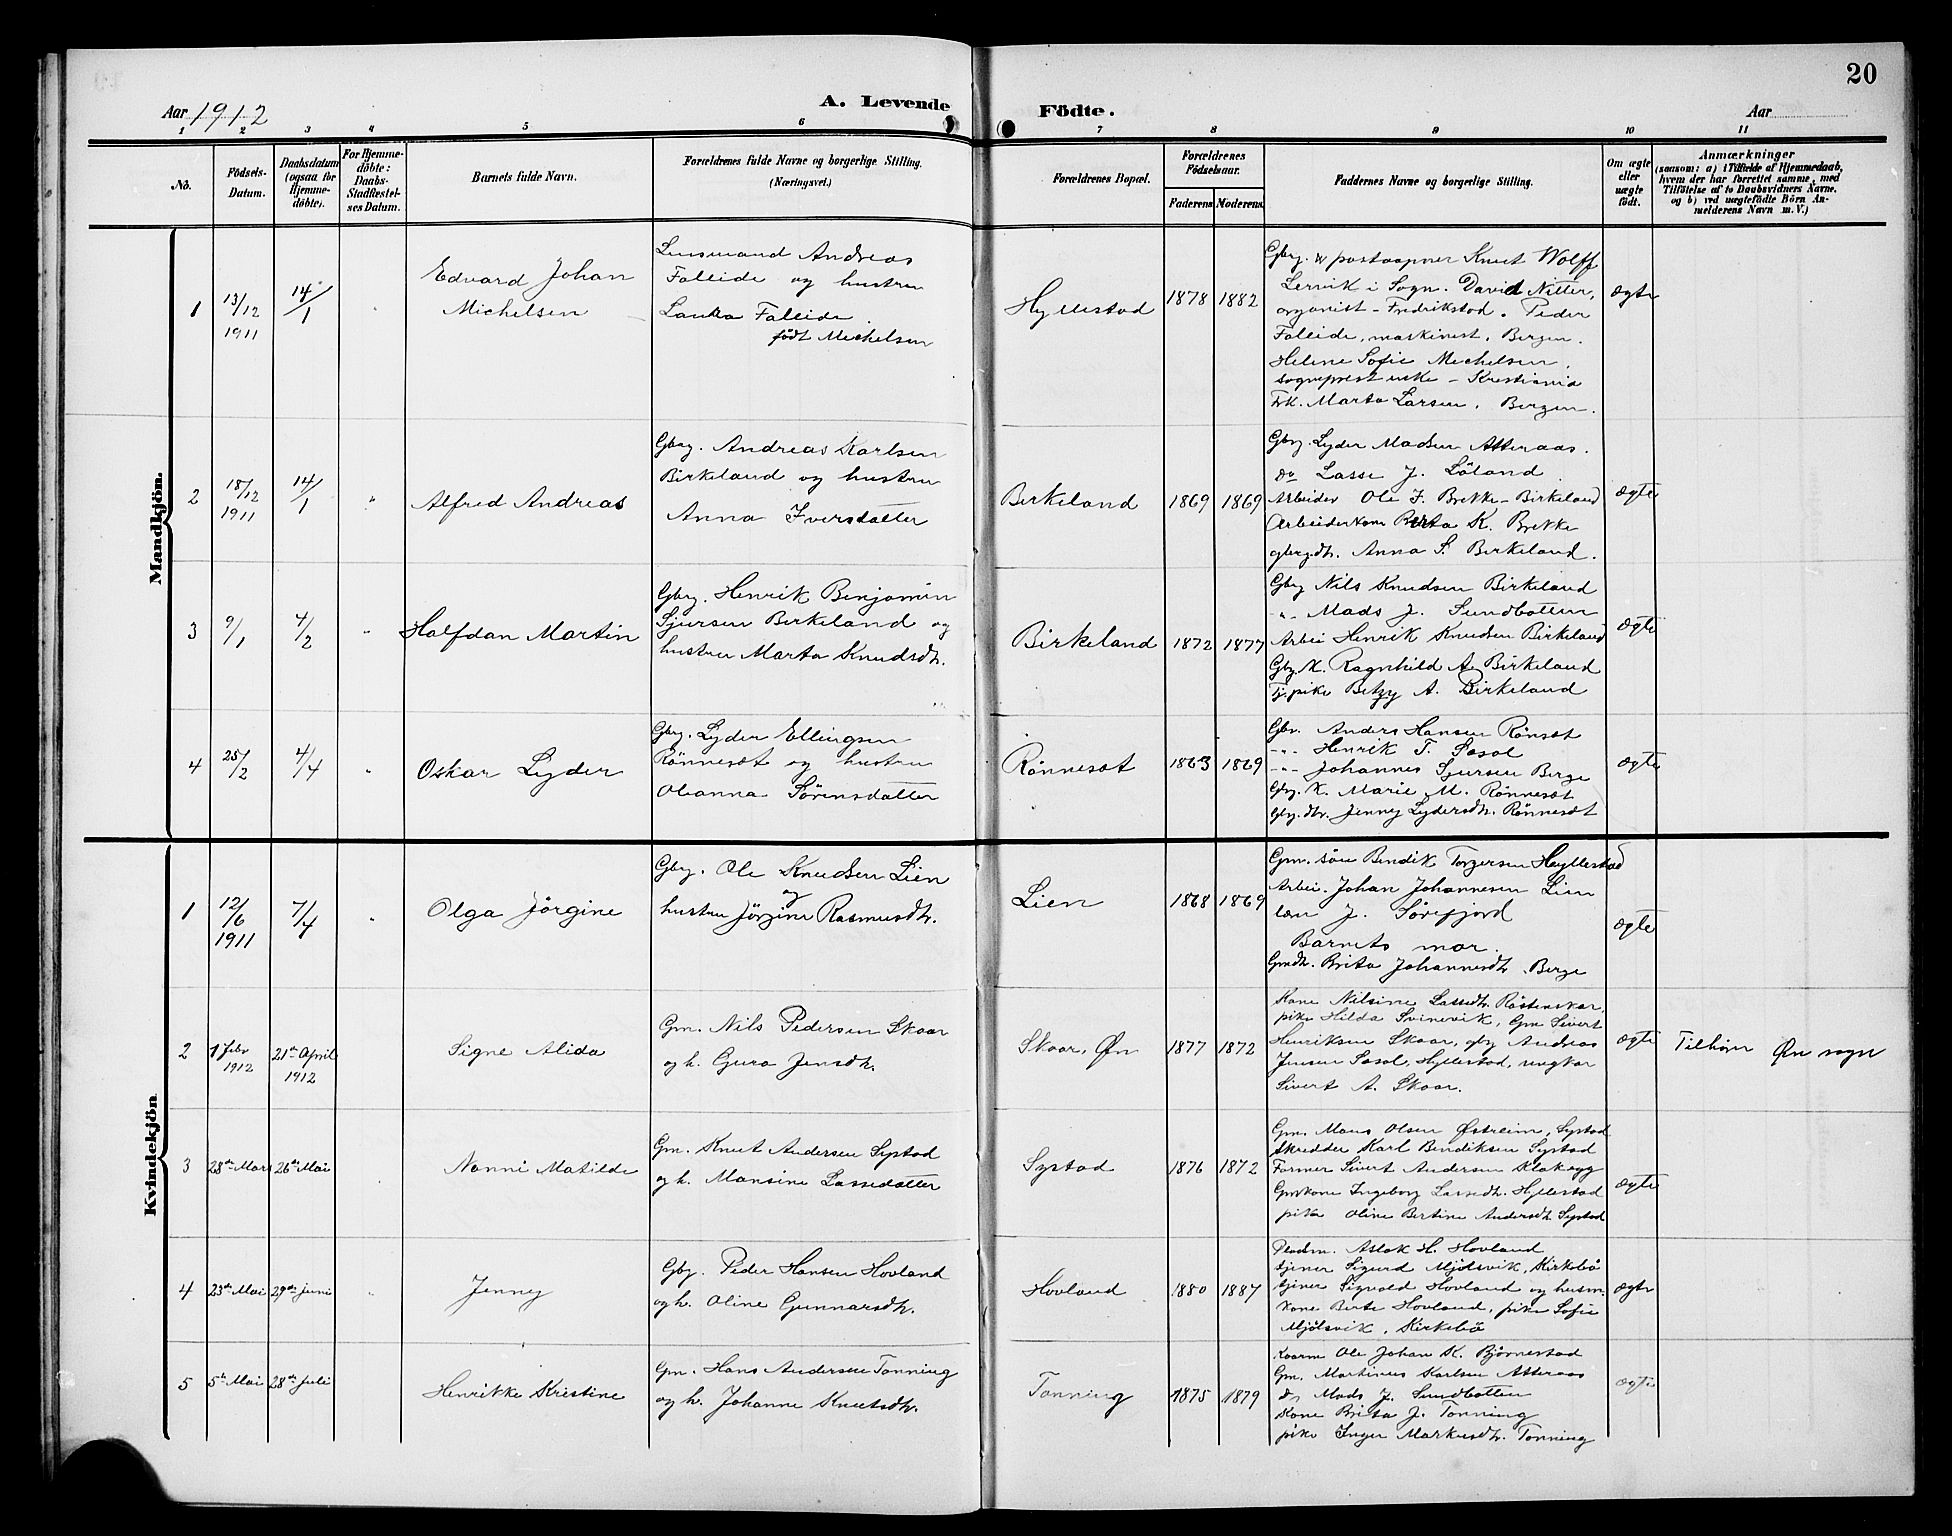 20
Aar 1912
A. Levende Födte.
Aar
1 2 3 4 5 6 7 8 9 10 11
No.
Födsels-Datum.
Daabsdatum (ogsaa for Hjemme-döbte).
For Hjemme-döbte: Daabs-Stadfæstel-ses Datum.
Barnets fulde Navn.
Forældrenes fulde Navne og borgerlige Stilling. (Næringsvei.)
Forældrenes Bopæl.
Forældrenes Födselsaar.
Faderens Moderens
Faddernes Navne og borgerlige Stilling.
Om ægte eller uægte födt.
Anmærkninger
(saasom: a) i Tilfælde af Hjemmedaab, hvem der har forrettet samme, med Tilföielse af to Daabsvidners Navne, og b) ved uægtefödte Börn An-melderens Navn m. V.)
Mandkjön.
1
13/12 1911
14/1
"
Edvard Johan
Michelsen
Lensmand Andreas
Faleide og hustru
Laura Faleide
født Michelsen
Hyllestad
1878 1882
Gbrg. & postaapner Knut Wolff
Lervik i Sogn. David Nitter,
organist - Fredrikstad. Peder
Faleide, maskinist, Bergen.
Helene Sofie Michelsen,
sogneprest enke - Kristiania
Frk. Marta Larsen, Bergen.
ægte
2
18/12 1911
14/1
"
Alfred Andreas
Gbrg. Andreas Karlsen
Birkeland og hustru
Anna Iversdatter
Birkeland
1869 1869
Gbrg. Lyder Madsen Atteraas.
Do Lasse J. Løland
Arbeider Ole I. Brekke - Birkeland
Arbeiderkone Berta K. Brekke
gbrg.dtr. Anna S. Birkeland.
ægte
3
9/1
4/2
"
Halfdan Martin
Gbrg. Henrik Benjamin
Sjursen Birkeland og
hustru Marta Knudsdtr.
Birkeland
1872 1877
Gbrg Nils Knudsen Birkeland
-"- Mads J. Sundbotten
Arbei Henrik Knudsen Birkeland
Gbg. K. Ragnhild A. Birkeland
Tj.pike Betzy A. Birkeland
ægte
4
25/2
4/4
"
Oskar Lyder
Gbrg. Lyder Ellingsen
Rønnesæt og hustru
Oleanna Sørensdatter
Rønnesæt
1863 1869
Gbr. Anders Hansen Rønsæt
-"- Henrik T. Sasol
-"- Johannes Sjursen Berge
Gbg. K. Marie M. Rønnesæt
Gbg. dtr. Jenny Lydersdtr. Rønnesæt
ægte
Kvindekjön
1
12/6 1911
7/4
"
Olga Jørgine
Gbrg. Ole Knudsen Lien
og
hustru Jørgine Rasmusdtr.
Lien
1868 1869
Gm. søn Bendik Torgersen Hyllestad
Arbei. Johan Johannesen Lien
J. Sørefjord
Barnets mor.
Gmdtr. Brita Johannesdtr. Berge
ægte
2
1 Febr 1912
21de April 1912
Signe Alida
Gm. Nils Pedersen Skaar
og h. Guro Jensdtr.
Skaar, Øn
1877 1872
Kone Nilsine Lassedtr. Røstenskar,
pike Hilda Svinevik, Gm Sivert
Henriksen Skaar, gbg Andreas
Jensen Sasol, Hyllestad, ungkar
Sivert A. Skaar.
ægte
Tilhører Øn sogn
3
28de Mars
26de Mai
Nanni Matilde
Gm. Knut Andersen Systad
og h. Mansine Lassedatter
Systad
1876 1872
Gm. Mons Olsen Østreim, Systad
Skredder Karl Bendiksen Systad
Farmer Sivert Andersen Klakegg
Gmkone Ingeborg Lassedtr. Hyllestad
pike Oline Bertine Andersdtr. Systad
ægte
4
23de Mai
29de Juni
"
Jenny
Gbg. Peder Hansen Hovland
og h. Oline Gunnarsdtr.
Hovland
1880 1887
Pladsm. Aslak H. Hovland
tjener Sigurd Mjølsvik, Kirkebø
tjener Sigvald Hovland og husm.
kone Berte Hovland, pike Sofie
Mjølsvik, Kirkebø
ægte
5
5te Mai
28de Juli
Henrikke Kristine
Gm. Hans Andersen Tonning
og h. Johanne Knutsdtr.
Tonning
1875 1879
Kaarm Ole Johan K. Bjørnestad
Gm. Martinus Karlsen Atteraas
Do Mads J. Sundbotten
Kone Brita J. Tonning
pike Inger Markusdtr. Tonning
ægte